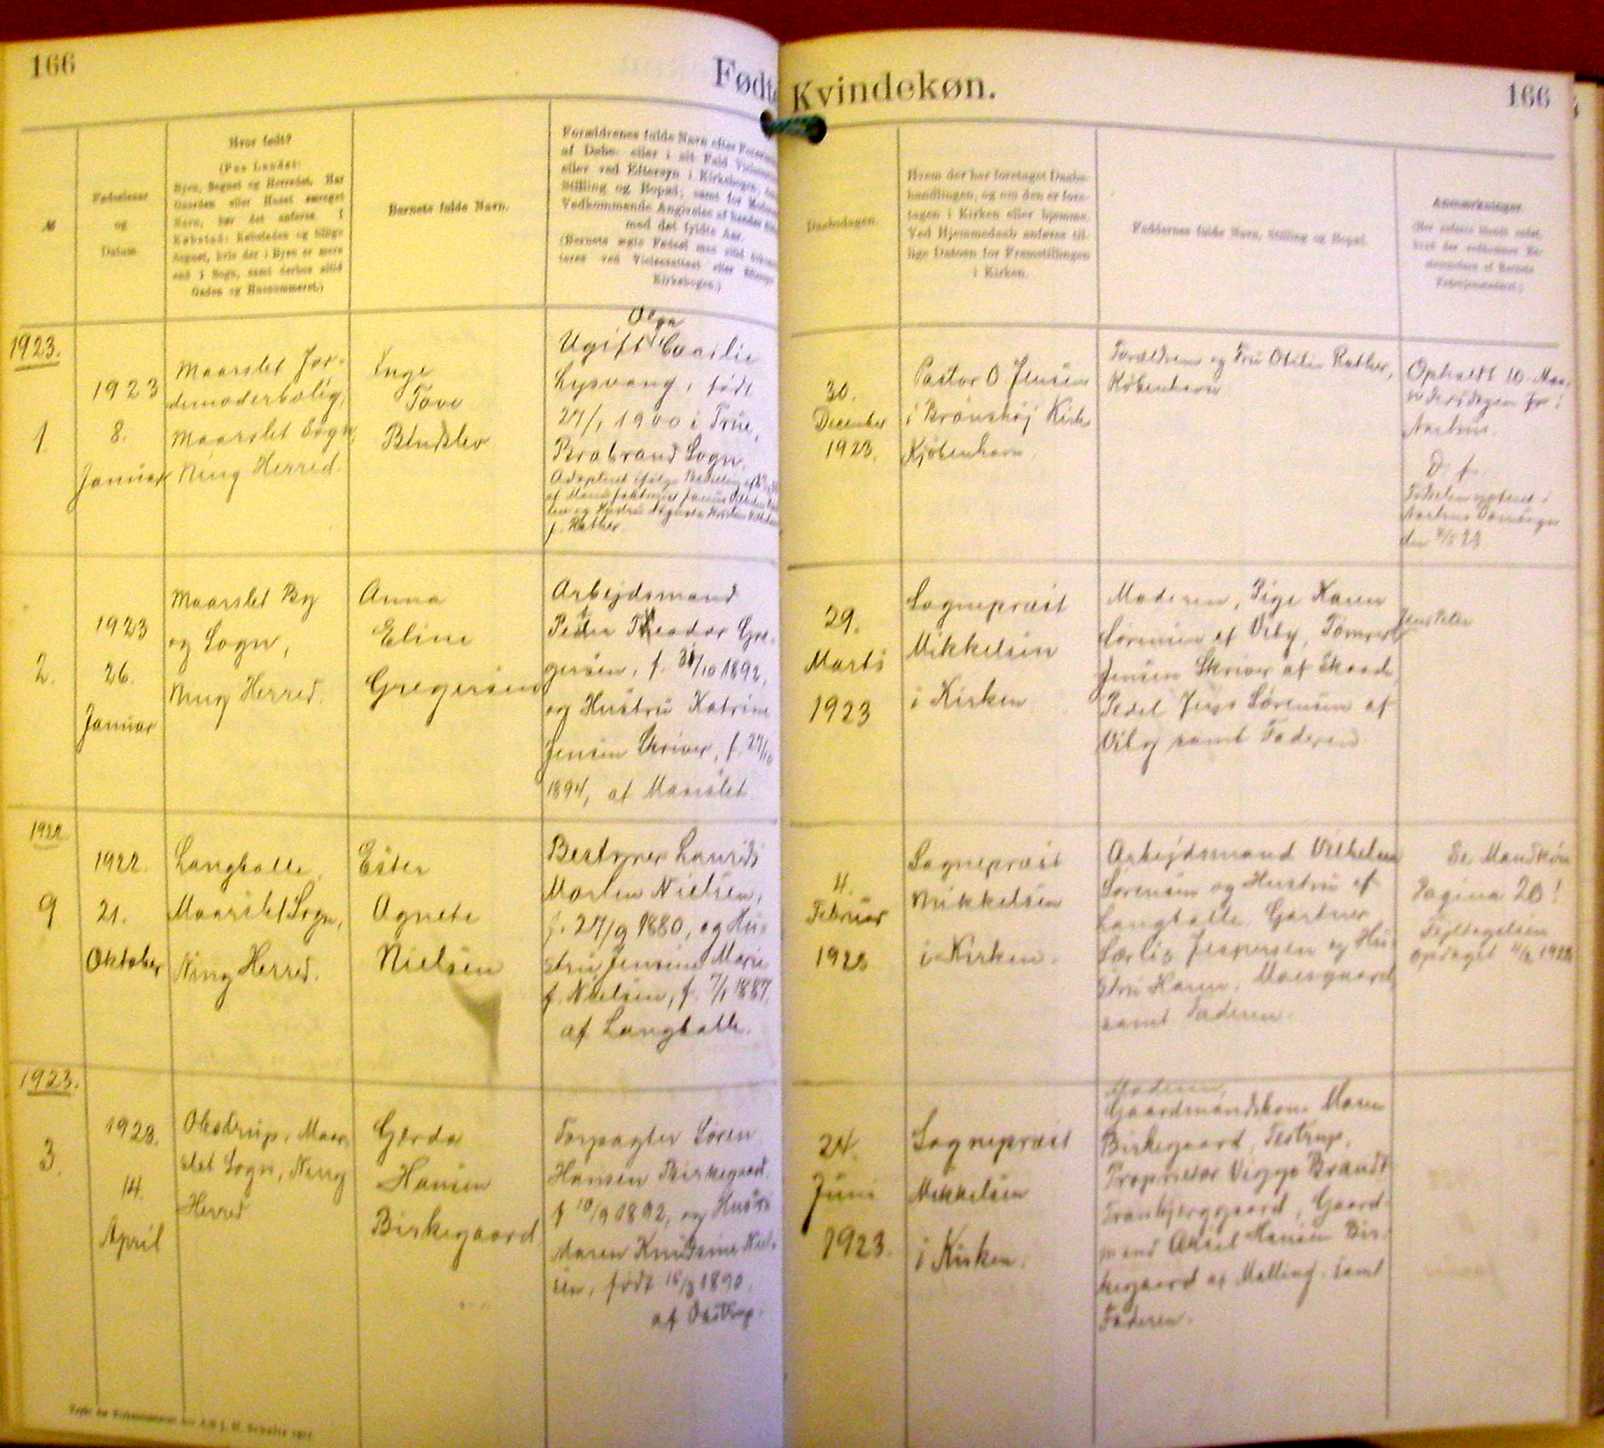 166
Fødte
Kvindekøn.
166
№
Fødselsaar
og
Datum.
Hvor født?
(Paa Landet:
Byen, Sognet og Herredet. Har
Gaarden eller Huset særeget
Navn, bør det anføres. I
Købstad: Købstadens og tillige
Sognet, hvis der i Byen er mere
end 1 Sogn, samt derhos altid
Gaden og Husnummeret.)
Barnets fulde Navn.
Forældrenes fulde Navn
af Daabs- eller i alt Fald
eller ved Eftersyn i Kirkebogen,
Stilling og Bopæl, samt for
Vedkommende Angivelse af hendes
med det fyldte Aar.
(Barnets ægte Fødsel maa altid
ved Vielsesattest eller
Kirkebogen.)
Daabsdagen.
Hvem der har foretaget Daabs-
handlingen, og om den er fore-
tagen i Kirken eller hjemme.
Ved Hjemmedaab anføres til-
lige Datoen for Fremstillingen
i Kirken.
Faddernes fulde Navn, Stilling og Bopæl.
Anmærkninger.
1923.
1.
1923
8.
Januar
Maarslet Jor-
demoderbolig,
Maarslet Sogn,
Ning Herred.
Inge
Tove
Bindslev
Olga
Ugift Cecilie
Lysvang, født
27/1 1900 i True,
Brabrand Sogn.
f. Rather.
30.
December
1923.
Pastor O Jensen
i Brønshøj Kirke
Kjøbenhavn.
Forældrene og Fru Otilie Rather,
København
Opholdt 10 Maa-
nedersdagen før i
Aarhus.
D. f.
2.
1923
26.
Januar
Maarslet By
og Sogn,
Ning Herred.
Anna
Eline
Gregersen
Arbejdsmand
Peder Theodor Gre-
gersen, f. 31/10 1892,
og Hustru Katrine
Jensen Skriver, f. 27/10
1894, af Maarslet.
29.
Marts
1923
Sognepræst
Mikkelsen
i Kirken
Moderen, Pige Karen
Sørensen af Viby, Tømrer
Jensen Skriver af Skaade
Pedel Jens Sørensen af
Viby samt Faderen.
Jens Peter
1922
9
1922.
21.
Oktober
Langballe,
Maarslet Sogn,
Ning Herred.
Ester
Agnete
Nielsen
Bestyrer Laurids
Morten Nielsen,
f. 27/9 1880, og Hu-
stru Jensine Marie
f. Nielsen, f. 7/1 1887,
af Langballe.
4.
Februar
1923
Sognepræst
Mikkelsen
i Kirken.
Arbejdsmand Vilhelm
Sørensen og Hustru af
Langballe, Gartner
Jespersen og Hu-
stru Karen, Moesgaard
samt Faderen.
Se Mandkøn
Pagina 20!
Fejltagelsen
opdaget
1923.
3.
1923.
14.
April
Obstrup, Maar-
slet Sogn, Ning
Herred
Gerda
Hansen
Birkegaard
Forpagter Søren
Hansen Birkegaard,
f 10/9 1892, og Hustru
Maren Knudsine Niel-
sen, født 18/3 1890.
af Obstrup.
24.
Juni
1923.
Sognepræst
Mikkelsen
i Kirken.
Moderen,
Gaardmandskone Maren
Birkegaard, Testrup,
Proprietær Viggo Brandt
Tranbjerggaard, Gaard-
mand Aksel Hansen Bir-
kegaard af Malling, samt
Faderen.